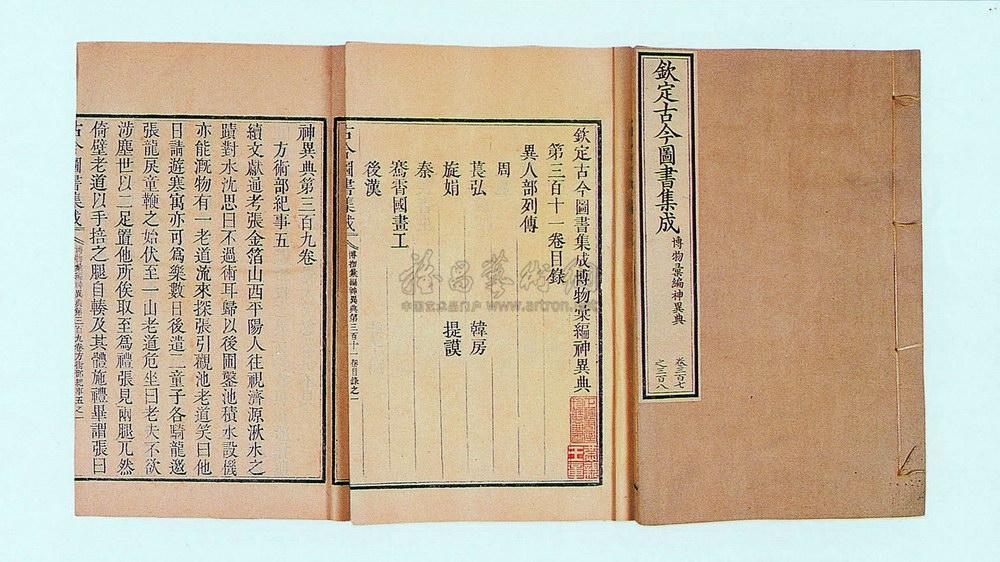 欽定古今圖書集成
博物彙編神異典
卷三百七
之三百八
欽定古今圖書集成博物彙編神異典
第三百十一卷目錄
異人部列傳
周
萇弘　韓房
旋娟　提謨
秦
騫霄國畫工
後漢
古今圖書集成
博物彙編神異典第三百十一卷目錄之一
神異典第三百九卷
方術部紀事五
續文獻通考張金箔山西平陽人往視濟源湫水之
蹟對水沈思曰不過術耳歸以後圃鑿池積水設機
亦能漑物有一老道流來探張引觀池老道笑曰他
日請遊寒寓亦可爲樂數日後遣二童子各騎龍邀
張龍戾童鞭之始伏至一山老道危坐曰老夫不欲
涉塵世以二足置他所俟取至爲禮張見兩腿兀然
倚壁老道以手掊之腿自輳及其體施禮畢謂張曰
古今圖書集成
博物彙編神異典第三百九卷方術部紀事五之一
www.artron.net